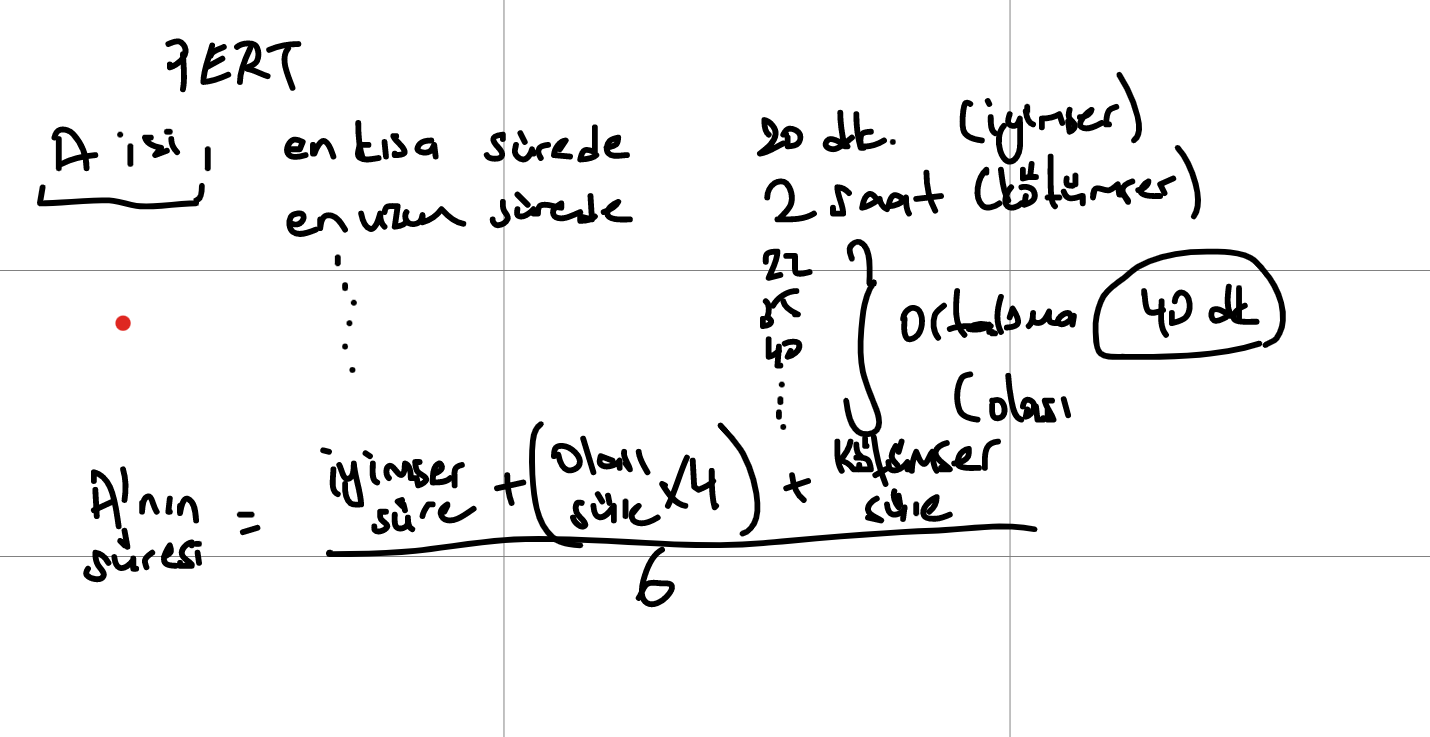 PERT
A işi, en kısa sürede 20 dk. (iyimser)
en uzun sürede 2 saat (kötümser)
22
35
40
ortalama 40 dk
(olası
A'nın süresi = iyimser süre + (olası süre x4) + kötümser süre
6